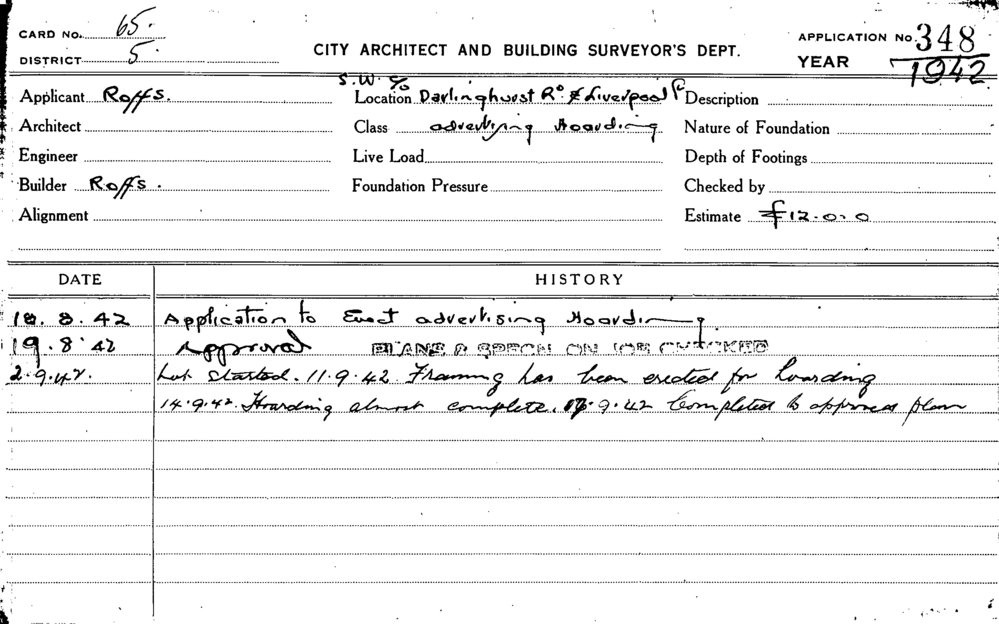 CARD No. 65.
DISTRICT 5.
CITY ARCHITECT AND BUILDING SURVEYOR'S DEPT.
APPLICATION No. 348
YEAR 1942
Applicant Roffs.
S.W. c/o
Location Darlinghurst Rd & Liverpool St
Description
Architect
Class advertising Hoarding
Nature of Foundation
Engineer
Live Load
Depth of Footings
Builder Roffs.
Foundation Pressure
Checked by
Alignment
Estimate £12.0.0
DATE HISTORY
18.8.42 Application to Erect advertising Hoarding.
19.8.42 Approval PLANS & SPECN ON JOB CHECKED
2.9.42. Not started. 11.9.42 Framing has been erected for hoarding
14.9.42. Hoarding almost complete. .9.42 Completed to approved plan